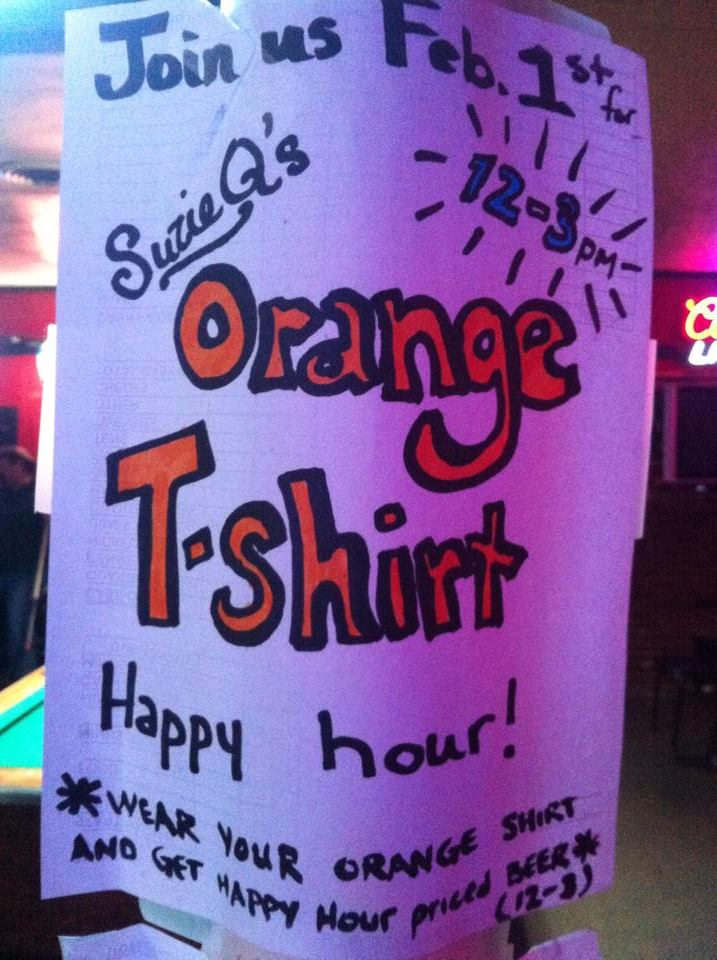 Join us Feb. 1st for
Suzie Q's
12-3 PM
Orange
T-shirt
Happy hour!
*WEAR YOUR ORANGE SHIRT
AND GET HAPPY HOUR priced BEER*
(12-3)